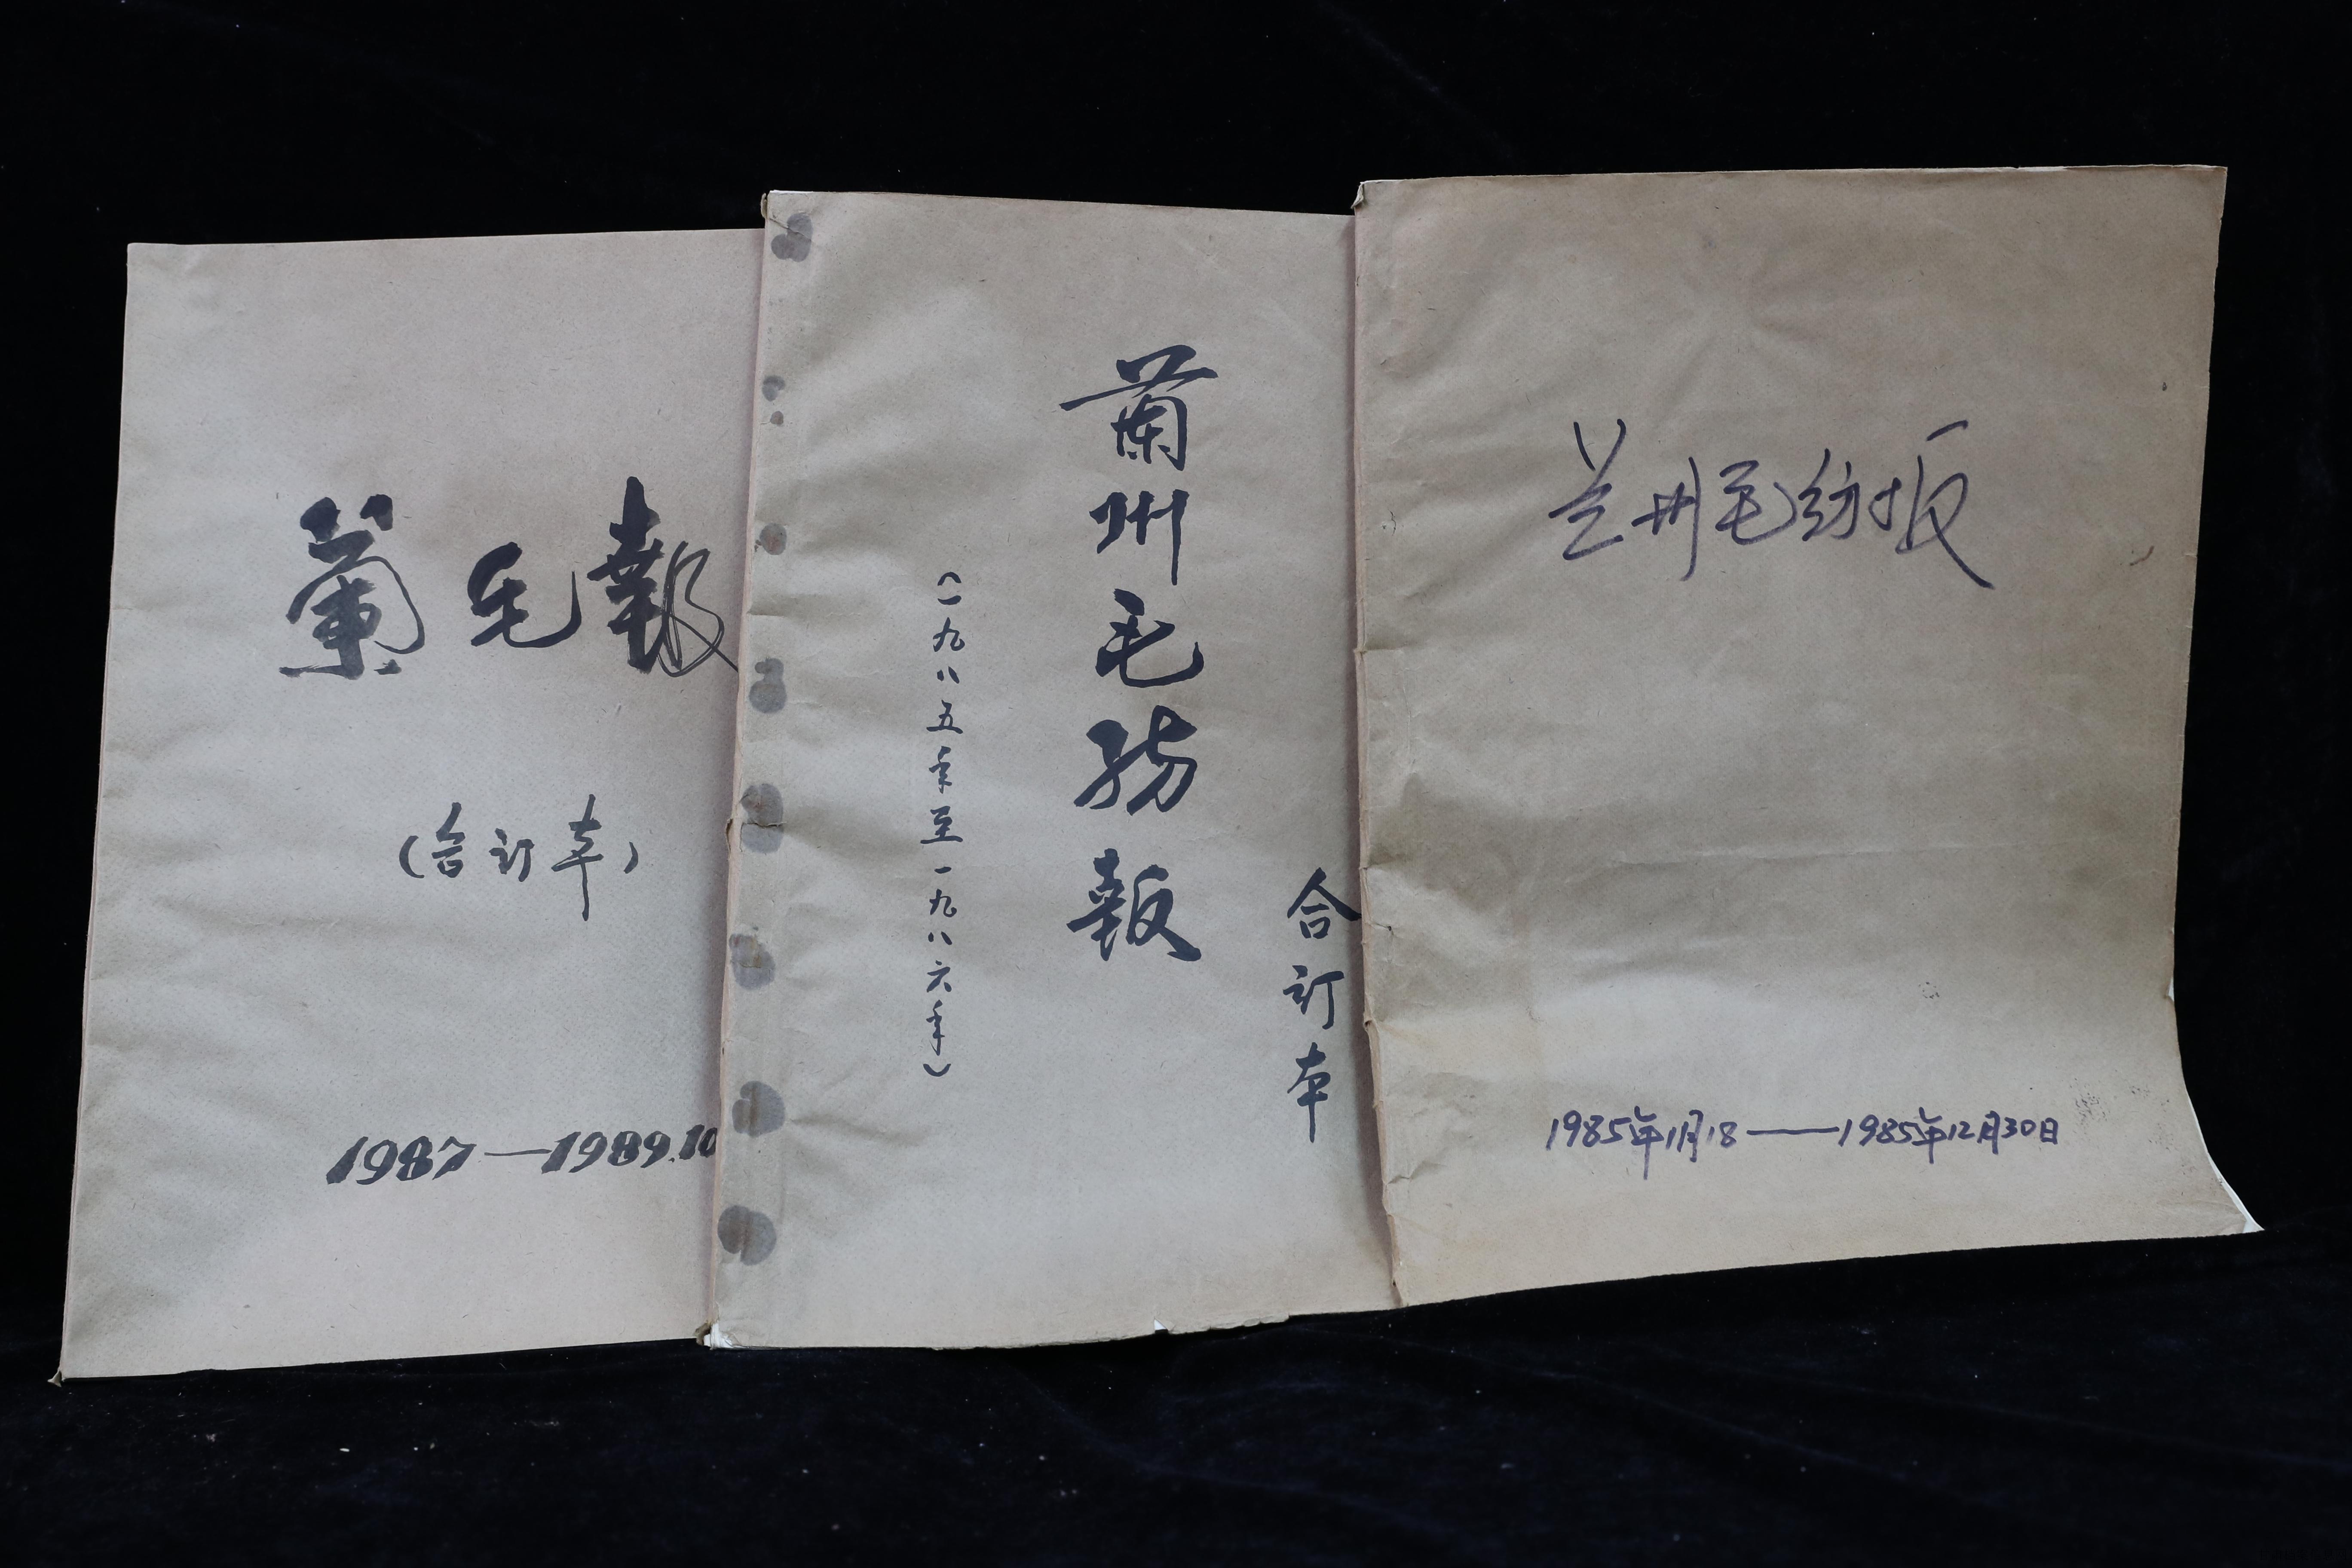 蘭毛報
(合订本)
1987—1989.10
蘭州毛紡報
(一九八五年至一九八六年)
合订本
兰州毛纺报
1985年11月18——1985年12月30日